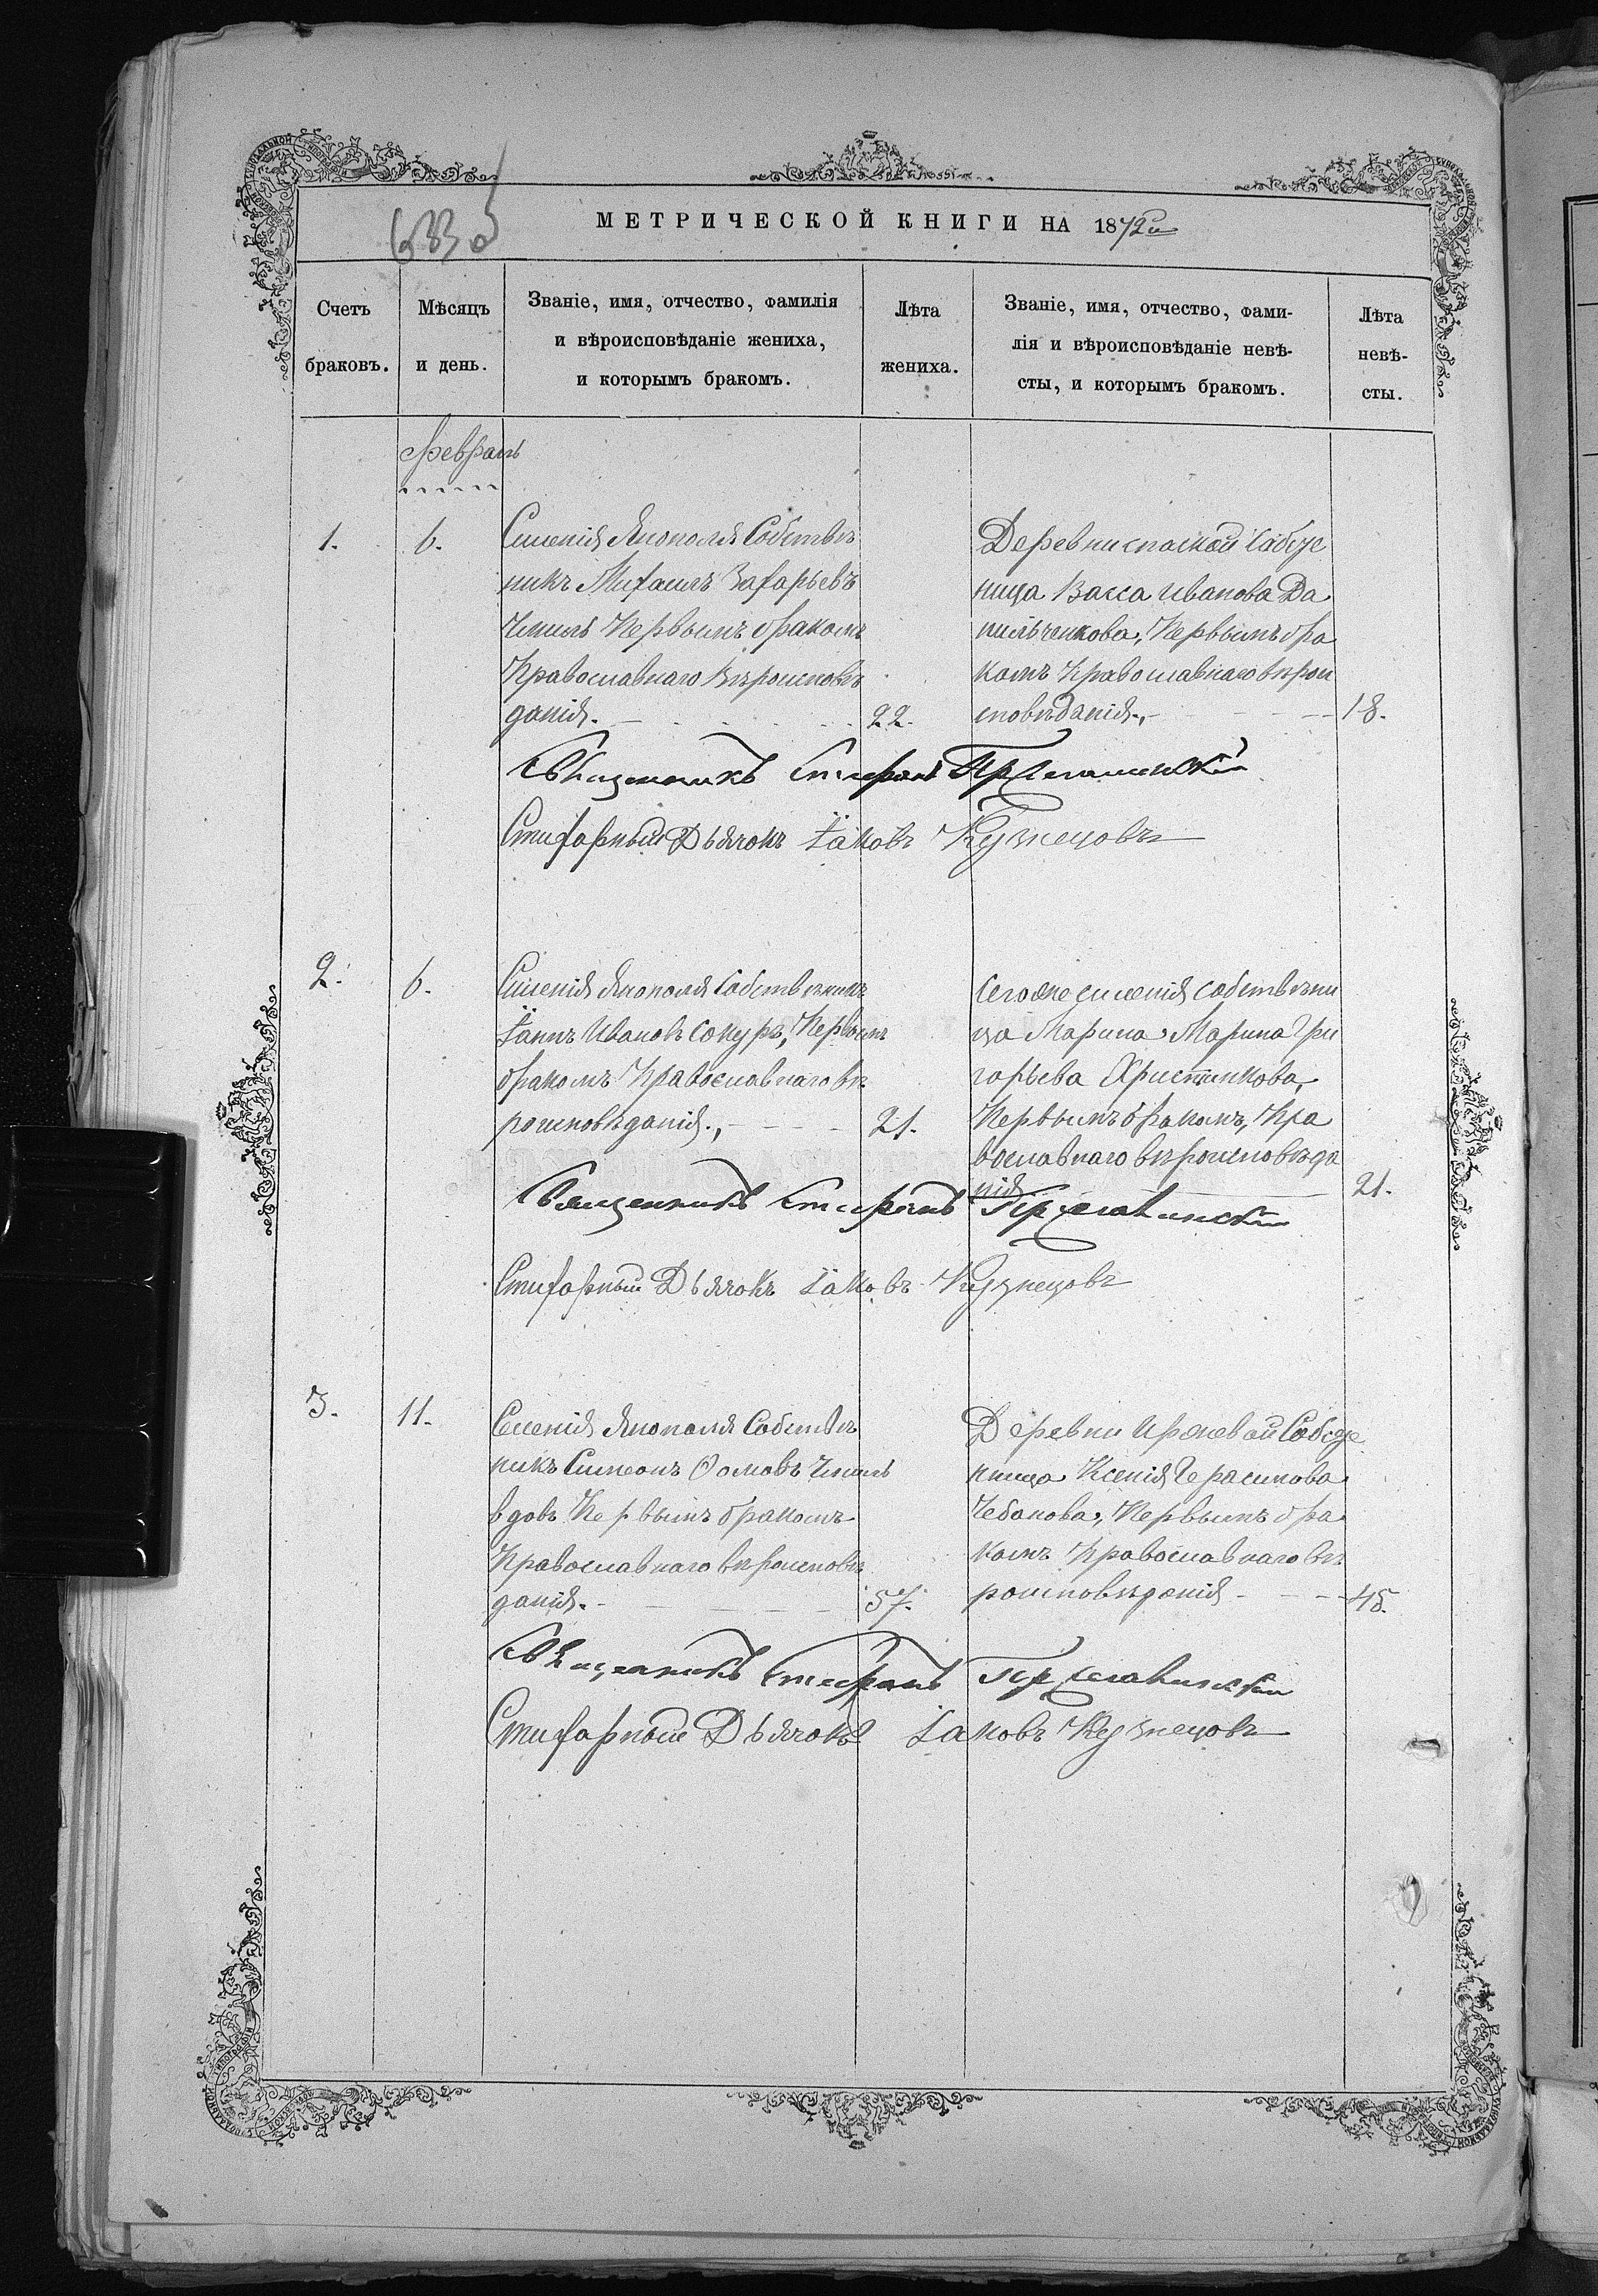 633 об
МЕТРИЧЕСКОЙ КНИГИ НА 1872й
Счетъ браковъ.
Мѣсяцъ и день.
Званіе, имя, отчество, фамилія
и вѣроисповѣданіе жениха,
и которымъ бракомъ.
Лѣта жениха.
Званіе, имя, отчество, фами-
лія и вѣроисповѣданіе невѣ-
сты, и которымъ бракомъ.
Лѣта невѣ-
сты.
Февраль
1.
6.
Сиѣнія Янополя Собствѣ
никъ Михаилъ Захарьевъ
Чмиль Первымъ бракомъ
Православнаго Вѣроисповѣ
данія.
22.
Деревни спаской Собстве
ница Васса Иванова Да
нильченкова, Первымъ бра
комъ Православнаго вѣрои
сповѣданія.,
18.
Священникъ Стефанъ
Стихарный Дьячокъ Іаковъ Кузнецовъ
2.
6.
Сиѣнія Янополя Собствѣникъ
Іаннъ Ивановъ Сокуръ, Первымъ
бракомъ Православнаго вѣ
роисповѣданія.,
21.
Сегоже сиѣнія собствѣни
ца Марина Марина Гри
горьева Христинкова
Первымъ бракомъ, Пра
вославнаго вѣроисповѣда
нія
21.
Священникъ Стефанъ
Стихарный Дьячокъ Іаковъ Кузнецовъ
3.
11.
Сиѣнія Янополя Собствѣ
никъ Симеонъ Ѳомовъ Чмиль
вдовъ Первымъ бракомъ
Православнаго вѣроисповѣ
данія.
57.
Деревни Собстве
ница Ксенія Герасимова
Чебанова, Первымъ бра
комъ Православнаго вѣ
роисповѣданія
45.
Священникъ Стефанъ
Стихарный Дьячокъ Іаковъ Кузнецовъ